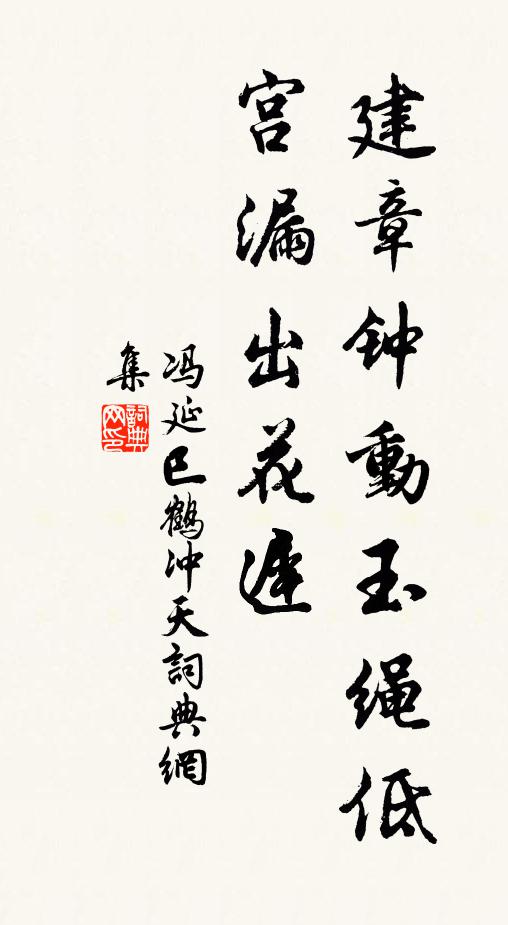 建章钟動玉绳低
宫漏出花遲
冯延巳鹤冲天詞典網
集
詞典网印